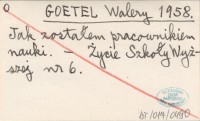 O GOETEL Walery 1958.
Jak zostałem pracownikiem
nauki. – Życie Szkoły Wyż-
szej nr 6.